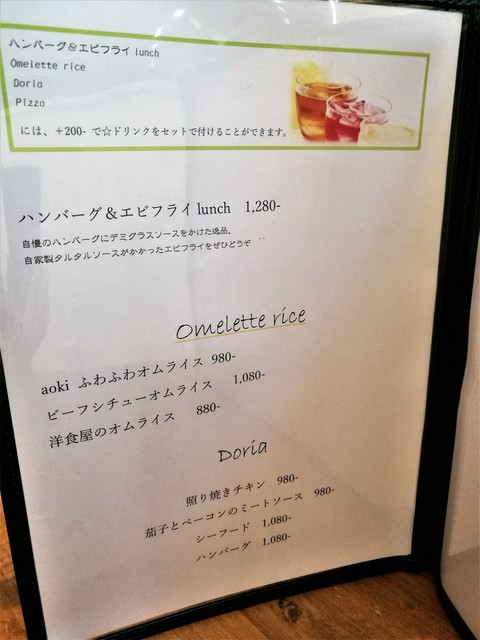 ハンバーグ＆エビフライ lunch
Omelette rice
Doria
Pizza
には、＋200- で☆ドリンクをセットで付けることができます。
ハンバーグ＆エビフライ lunch 1,280-
自慢のハンバーグにデミグラスソースをかけた逸品。
自家製タルタルソースがかかったエビフライをぜひどうぞ
Omelette rice
aoki ふわふわオムライス 980-
ビーフシチューオムライス 1,080-
洋食屋のオムライス 880-
Doria
照り焼きチキン 980-
茄子とベーコンのミートソース 980-
シーフード 1,080-
ハンバーグ 1,080-